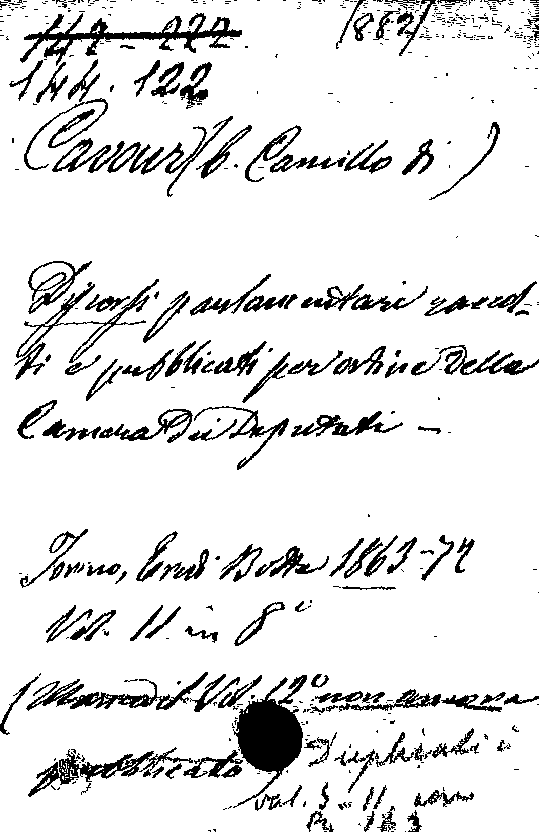 147-222 (882)
144. 122
Cavour (C. Camillo di)
Discorsi parlamentari raccol-
ti e pubblicati per ordine della
Camera dei Deputati -
Torino, Eredi Botta 1863-72
Vol. 11 in 8º
(Manca il Vol. 12º non ancora
pubblicato) Duplicati i
vol. 3-11